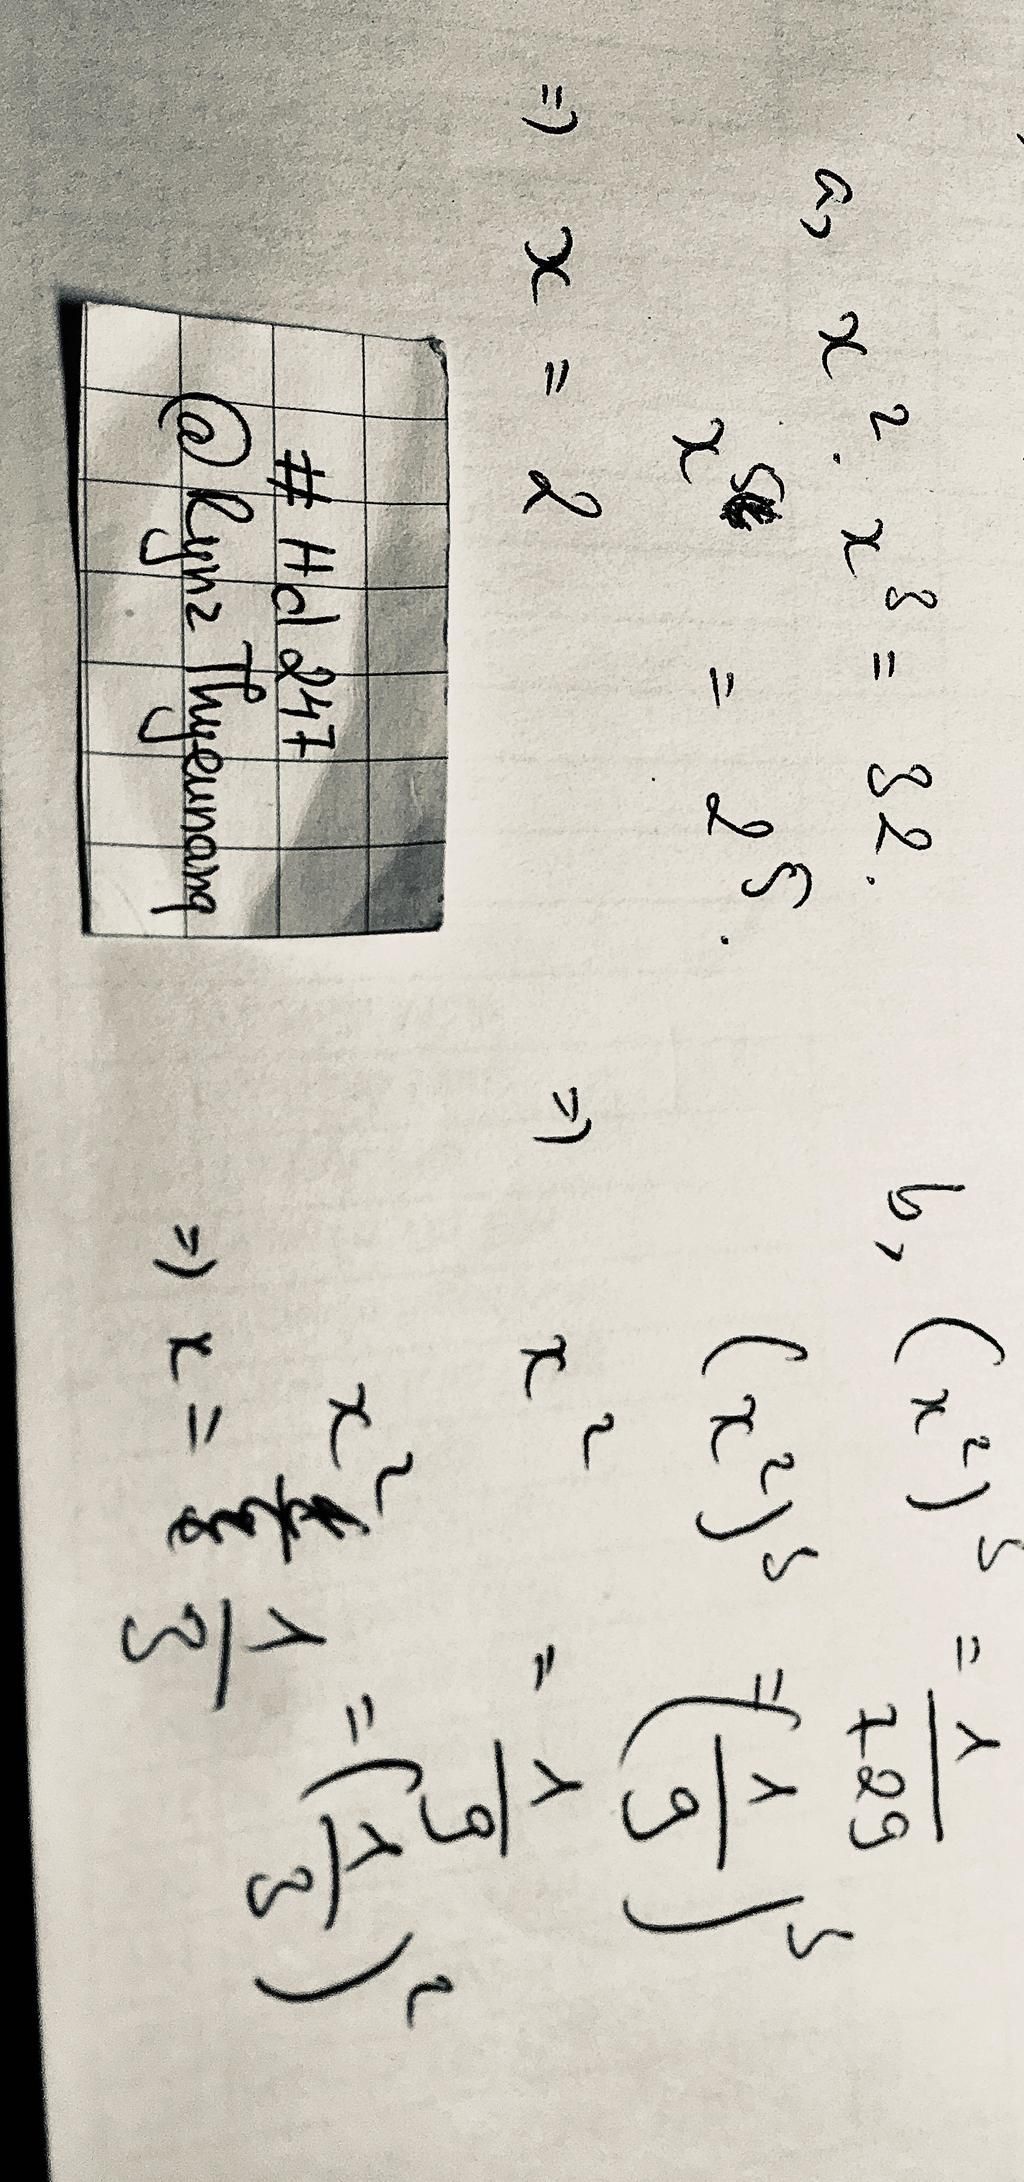 a, x². x³ = 32.
x⁵ = 2⁵.
=) x = 2
# Hd 247
@ Rynz Thyeunanq
b, (x²)³ = 1/729
(x²)³ = (1/9)³
=) x² = 1/9
x² = (1/3)²
=) x = 1/3